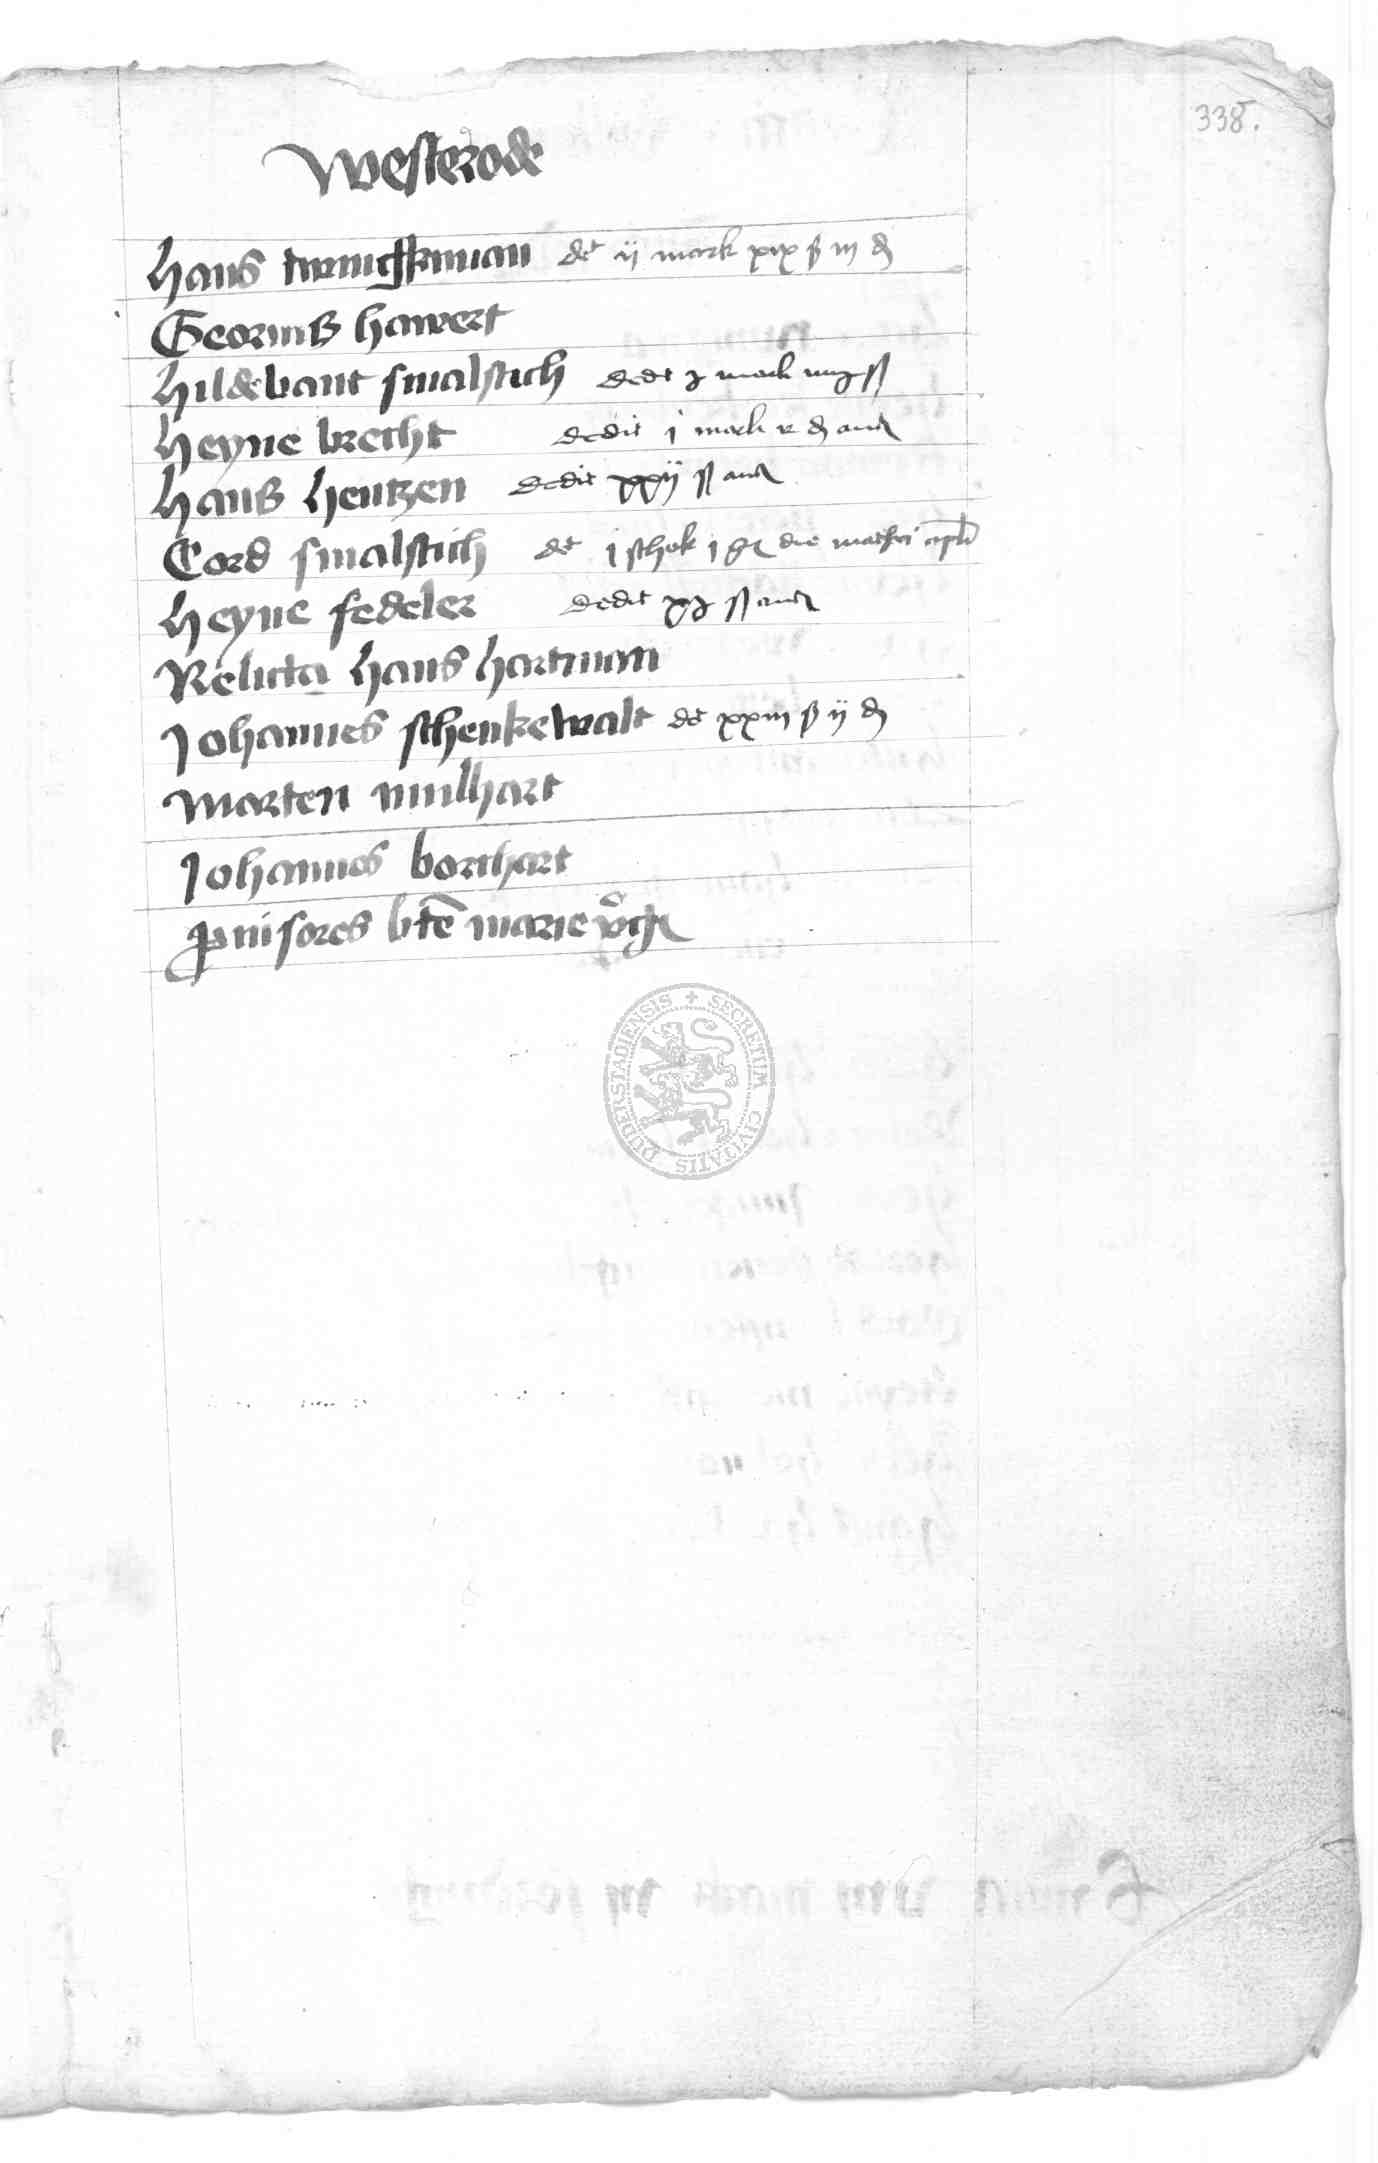 338.
Westerode
Hans det ij mark xix ß iij ₰
Georius hawert
Hildebant smalstich dedit j mark
Heyne brecht dedit j mark ₰
Hans Hentzen dedit xxij ß
Cord smalstich det j schok j gr die mathei apli
Heyne fedeler dedit xj ß
Relicta Hans Hartman
Johannes schenkewalt det xxiij ß ij ₰
Marten mulhart
Johannes borchart
puisores bte marie vgis
SECRETUM CIVITATIS DUDERSTADIENSIS